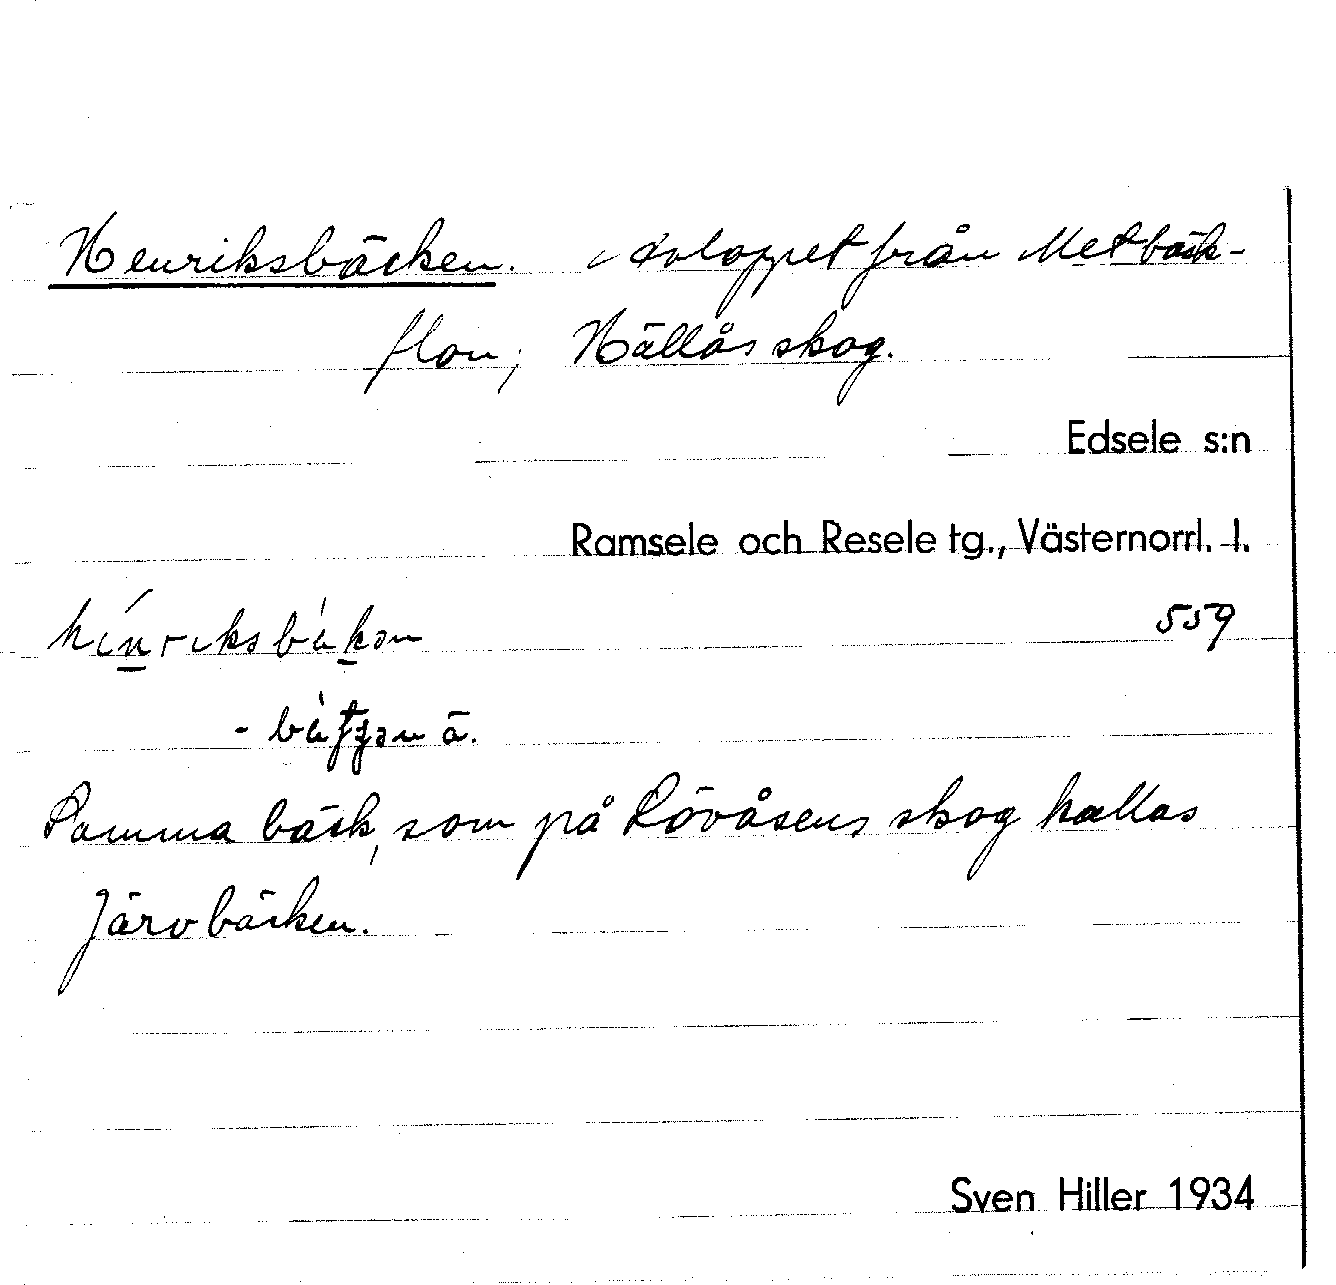 Henriksbäcken. Avloppet från Metbäck-
flon; Hällås skog.
Edsele s:n
Ramsele och Resele tg., Västernorrl. l.
559
Samma bäck, som på Rövåsens skog kallas
Järvbäcken.
Sven Hiller 1934